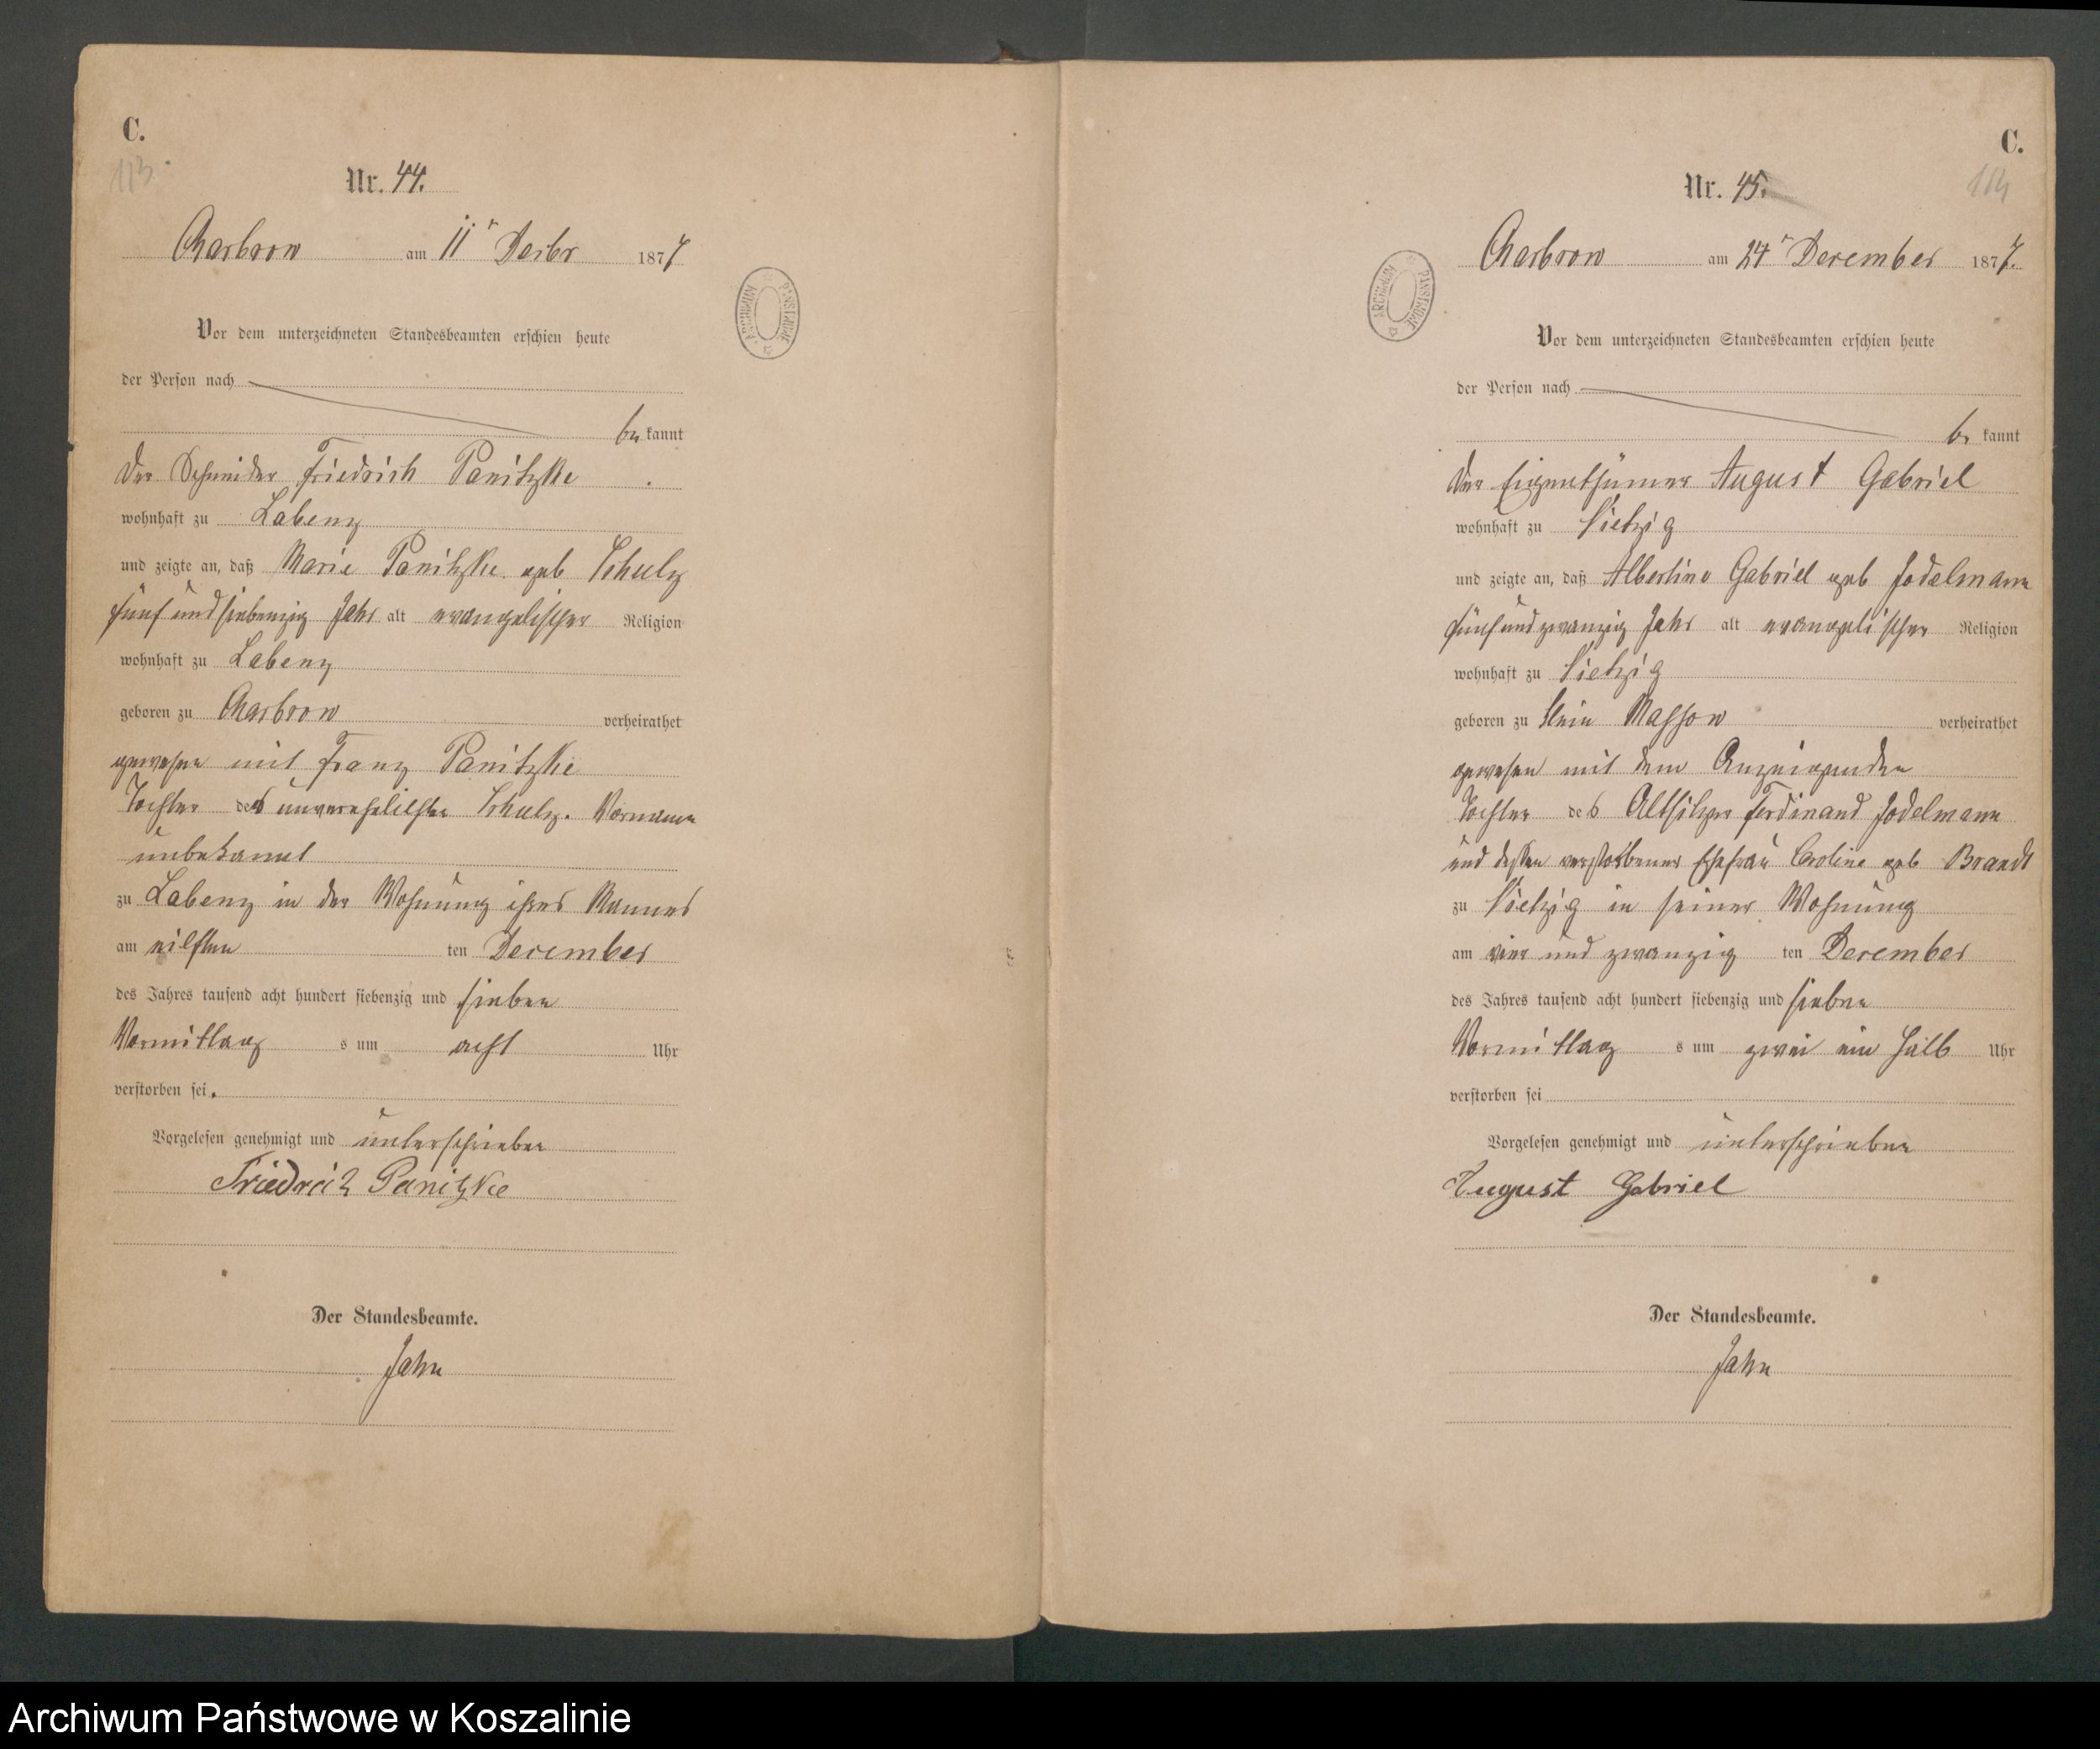 C.
113.
Nr. 44.
Charbrow am 11ᵗ Decbr 1877
Vor dem unterzeichneten Standesbeamten erschien heute
der Person nach
be kannt
der Schneider Friedrich Panitzke
wohnhaft zu Labenz
und zeigte an, daß Marie Panitzke geb Schulz
fünf und siebenzig Jahr alt evangelischer Religion
wohnhaft zu Labenz
geboren zu Charbrow verheirathet
gewesen mit Franz Panitzke
Tochter der unverehelichten Schulz. Vorname
unbekannt
zu Labenz in der Wohnung ihres Mannes
am eilften ten December
des Jahres tausend acht hundert siebenzig und sieben
Vormittag s um acht Uhr
verstorben sei.
Vorgelesen genehmigt und unterschrieben
Friedrich Panitzke
Der Standesbeamte.
Jahn
ARCHIWUM PAŃSTWOWE
C.
114
Nr. 45.
Charbrow am 24ᵗ December 1877.
Vor dem unterzeichneten Standesbeamten erschien heute
der Person nach
be kannt
der Eigenthümer August Gabriel
wohnhaft zu Vietzig
und zeigte an, daß Albertine Gabriel geb Jodelmann
fünf und zwanzig Jahr alt evangelischer Religion
wohnhaft zu Vietzig
geboren zu Klein Massow verheirathet
gewesen mit dem Anzeigenden
Tochter des Altsitzer Ferdinand Jodelmann
und dessen verstorbener Ehefrau Caroline geb Brandt
zu Vietzig in seiner Wohnung
am vier und zwanzig ten December
des Jahres tausend acht hundert siebenzig und sieben
Vormittag s um zwei ein halb Uhr
verstorben sei
Vorgelesen genehmigt und unterschrieben
August Gabriel
Der Standesbeamte.
Jahn
ARCHIWUM PAŃSTWOWE
Archiwum Państwowe w Koszalinie